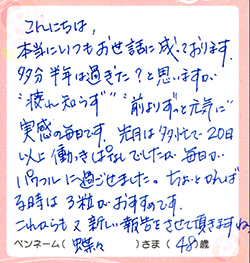 こんにちは、
本当にいつもお世話に成っております。
多分半年は過ぎた？と思いますが
"疲れ知らず" "前よりずっと元気に"
実感の毎日です。先月は多忙で20日
以上働きっぱなしでしたが毎日が
パワフルに過ごせました。ちょっとがんば
る時は3粒がおすすめです。
これからも又新しい報告をさせて頂きますね
ペンネーム(蝶々)さま(48歳